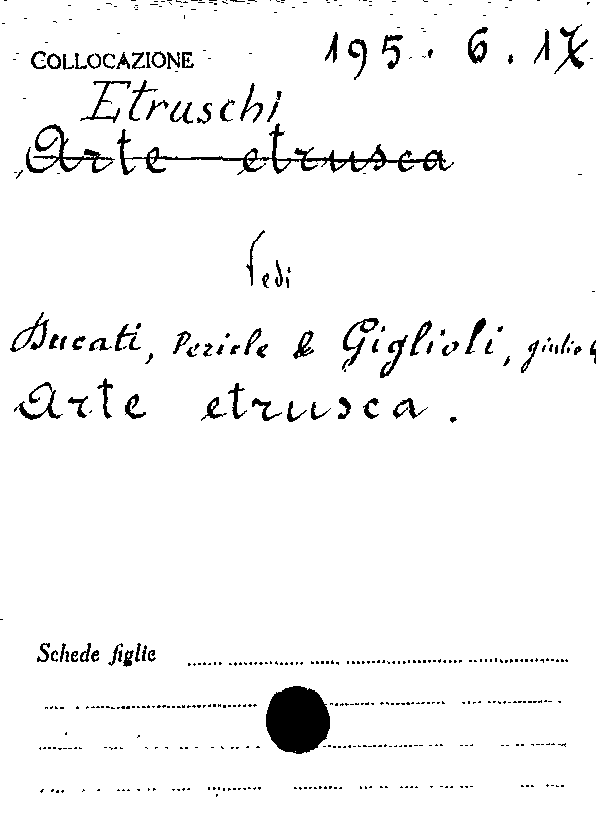 COLLOCAZIONE 195. 6. 17
Etruschi
Arte etrusca
Vedi
Ducati, Pericle & Giglioli, giulio
Arte etrusca.
Schede figlie